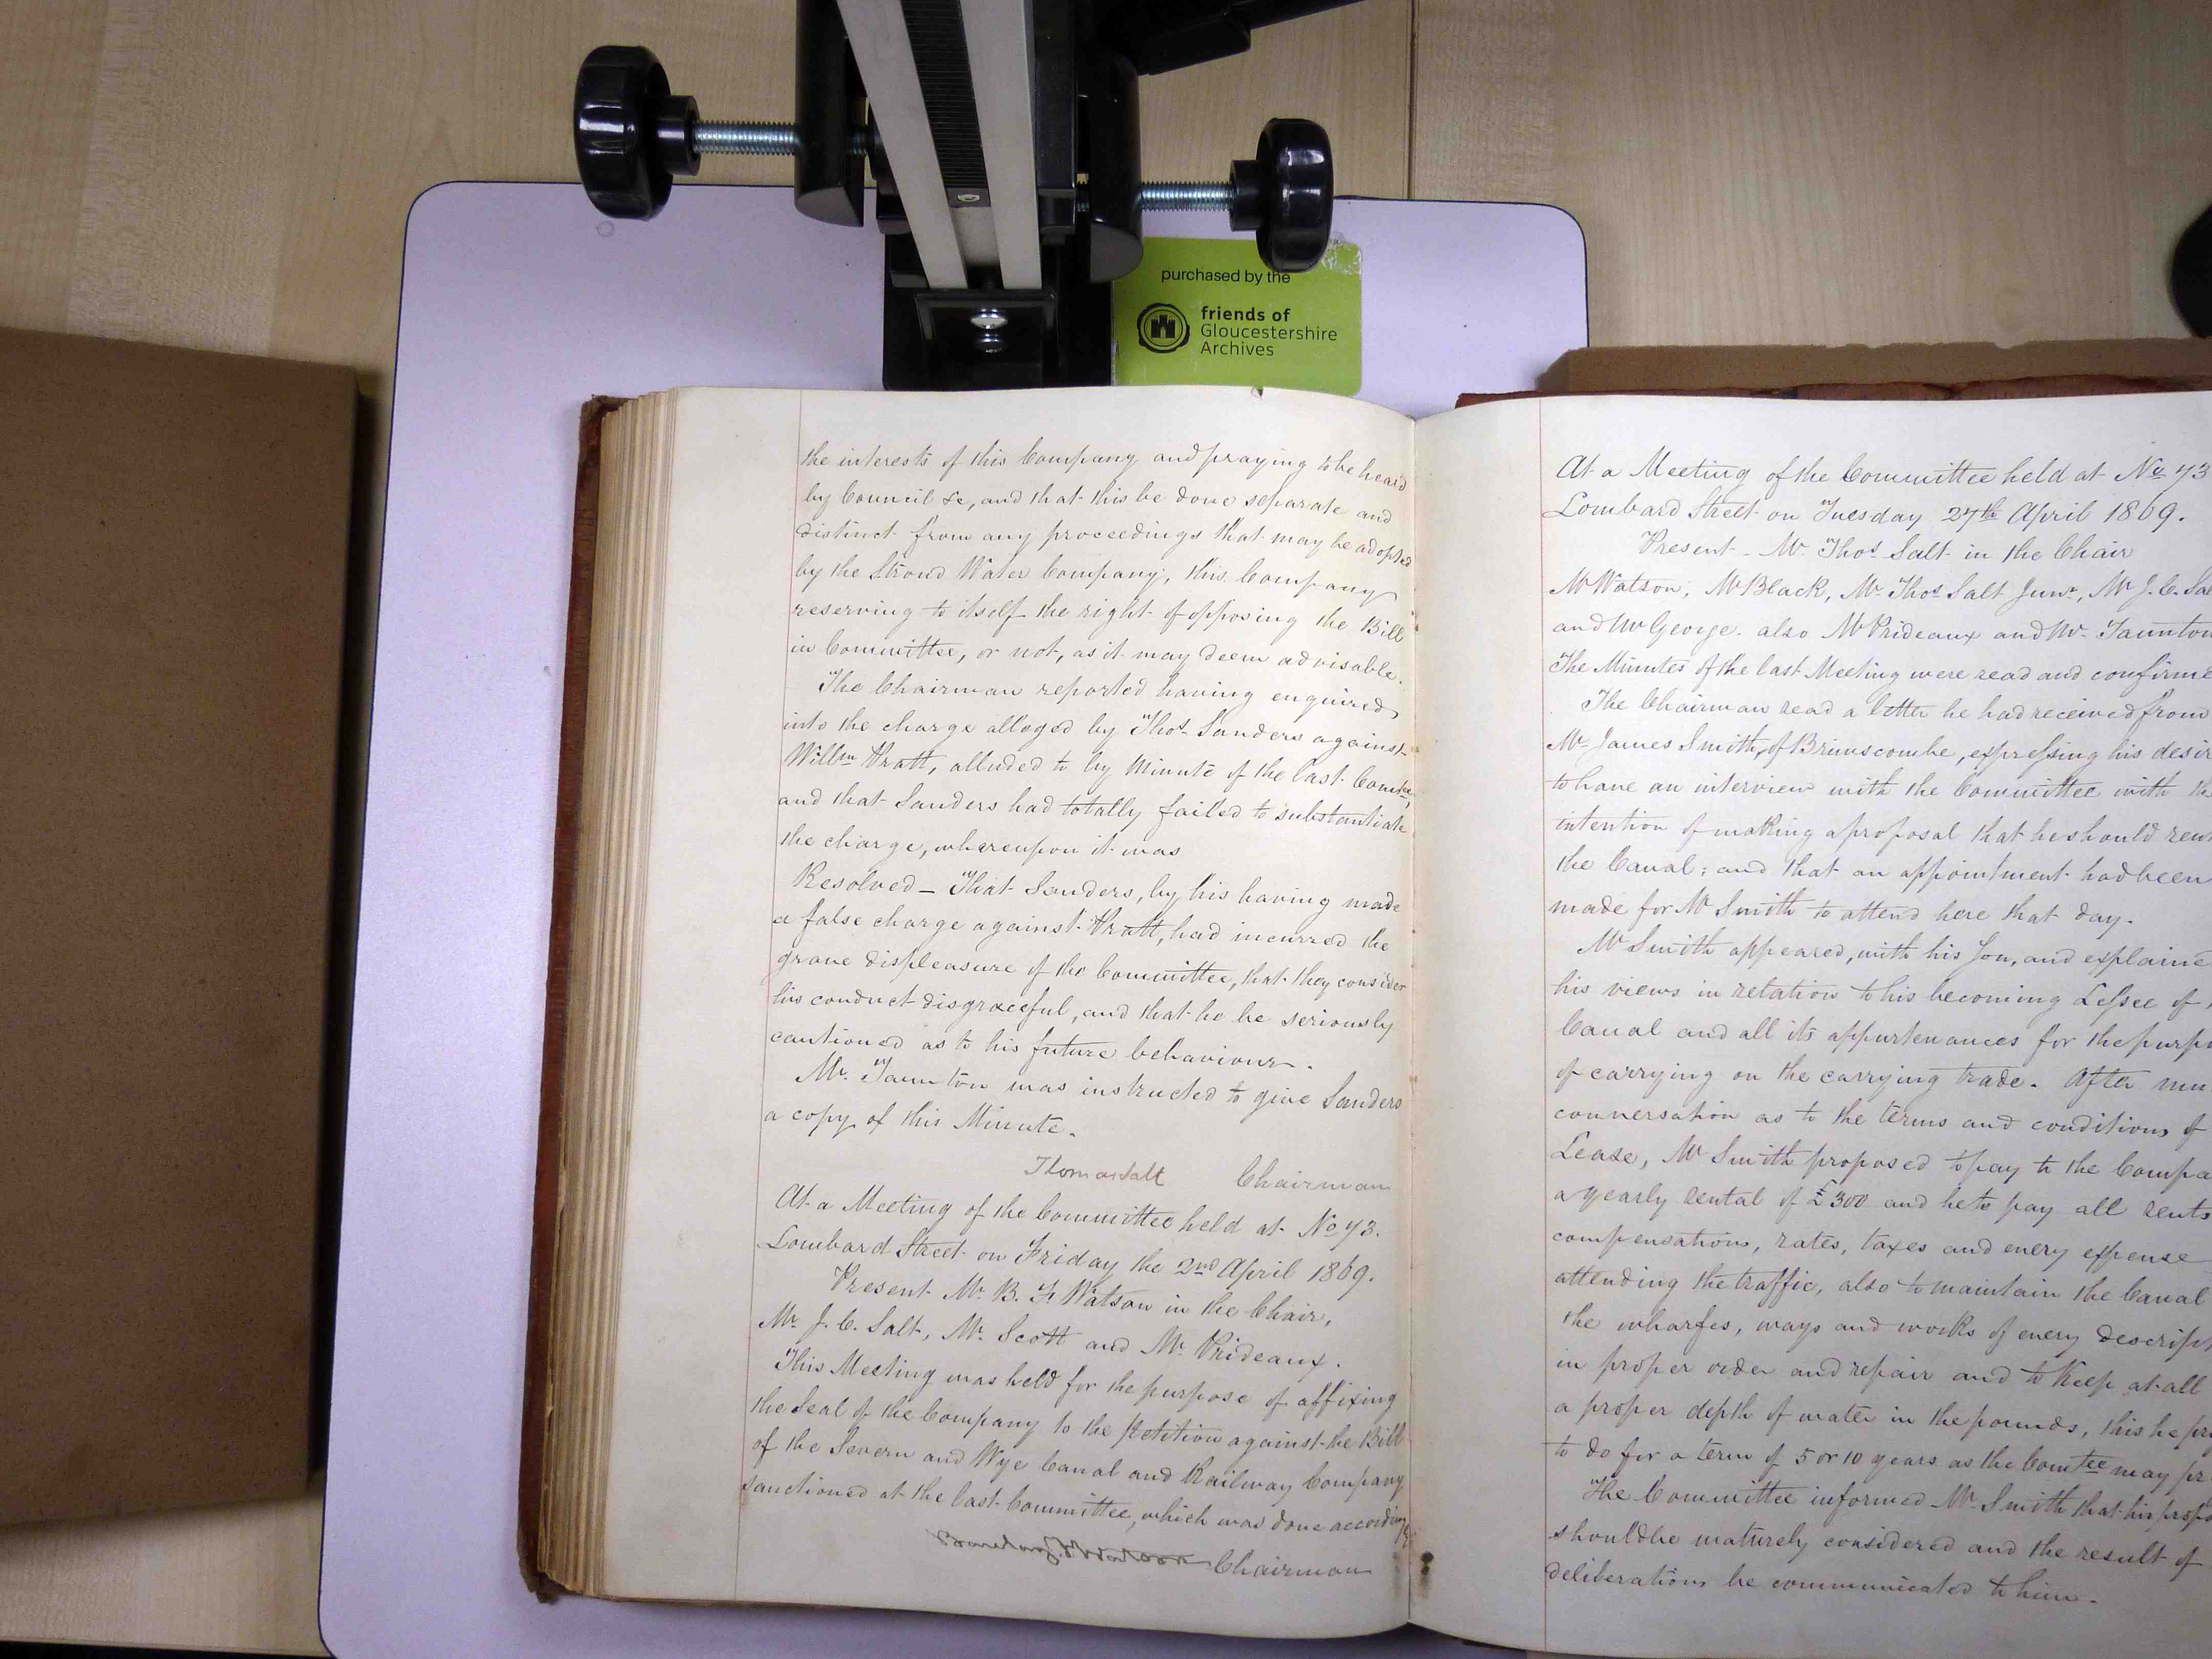 purchased by the
friends of
Gloucestershire
Archives
the interests of this Company and praying to be heard
by Council &c, and that this be done separate and
distinct from any proceedings that may be adopted
by the Stroud Water Company, this Company
reserving to itself the right of opposing the Bill
in Committee, or not, as it may deem advisable.
The Chairman reported having enquired
into the charge alleged by Thos. Sanders against
Willm Pratt, alluded to by Minute of the last Comtee,
and that Sanders had totally failed to substantiate
the charge, whereupon it was
Resolved – That Sanders, by his having made
a false charge against Pratt, had incurred the
grave displeasure of the Committee, that they consider
his conduct disgraceful, and that he be seriously
cautioned as to his future behaviour.
Mr. Taunton was instructed to give Sanders
a copy of this Minute.
Thomas Salt Chairman
At a Meeting of the Committee held at No 73.
Lombard Street on Friday the 2nd April 1869.
Present Mr. B. F. Watson in the Chair,
Mr J. C. Salt, Mr. Scott and Mr. Prideaux.
This Meeting was held for the purpose of affixing
the Seal of the Company to the Petition against the Bill
of the Severn and Wye Canal and Railway Company
sanctioned at the last Committee, which was done accordingly
Barclay F Watson Chairman
At a Meeting of the Committee held at No 73
Lombard Street on Tuesday 27th April 1869.
Present – Mr Thos. Salt in the Chair
Mr Watson, Mr Black, Mr. Thos. Salt Junr, Mr J. C. Sal
and Mr George. also Mr Prideaux and Mr. Taunton
The Minutes of the last Meeting were read and confirme
The Chairman read a letter he had received from
Mr James Smith, of Brimscombe, expressing his desir
to have an interview with the Committee with th
intention of making a proposal that he should ren
the Canal; and that an appointment had been
made for Mr Smith to attend here that day.
Mr Smith appeared, with his Son, and explaine
his views in relation to his becoming Lessee of
Canal and all its appurtenances for the purpo
of carrying on the carrying trade. After mu
conversation as to the terms and conditions of
Lease, Mr Smith proposed to pay to the Compa
a yearly rental of £300 and he to pay all rents
compensations, rates, taxes and every expense
attending the traffic, also to maintain the Canal
the wharfes, ways and works of every descript
in proper order and repair and to keep at all
a proper depth of water in the pounds, this he pr
to do for a term of 5 or 10 years as the Comtee may pr
The Committee informed Mr. Smith that his propo
should be maturely considered and the result of
deliberations be communicated to him.